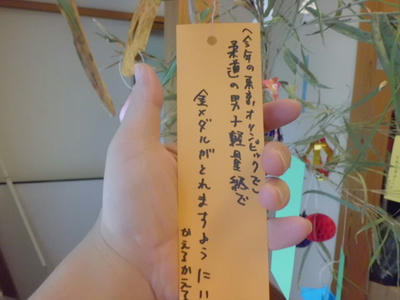 今年の東京オリンピックで
柔道の男子軽量級で
金メダルがとれますように!!
かえるがえる